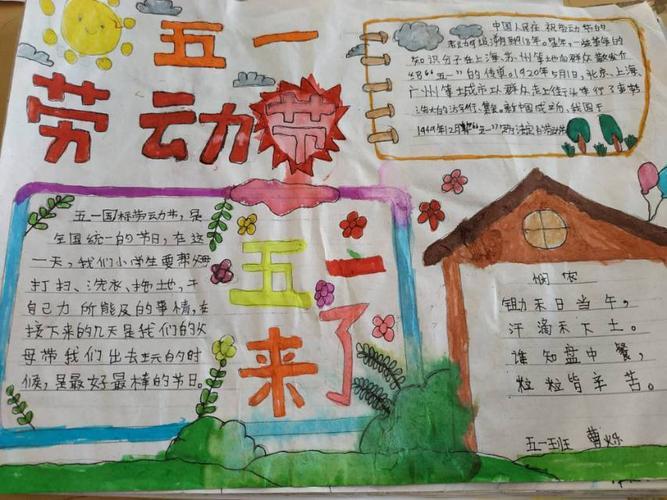 五一
劳动节
中国人民庆祝劳动节的
活动可追溯到1918年。是年,一些革命的
知识分子在上海、苏州等地向群众散发介
绍“五一”的传单。1920年5月1日,北京、上海、
广州等城市工人群众走上街头举行了
浩大的游行、集会。新中国成立后,我国于
1949年12月将“五一”
五一国际劳动节,是
全国统一的节日,在这
一天,我们小学生要帮妈妈
打扫、洗衣、拖地,干
自己力所能及的事情,在
接下来的几天是我们的父
母带我们出去玩的时
候,是最好最棒的节日。
五一
来了
悯农
锄禾日当午,
汗滴禾下土。
谁知盘中餐,
粒粒皆辛苦。
五一班 曹烁